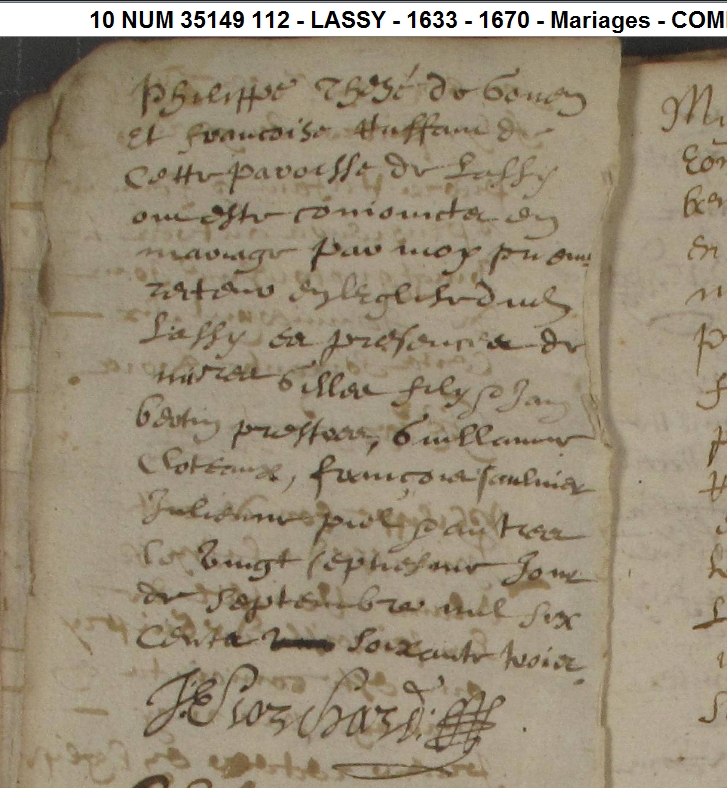 10 NUM 35149 112 - LASSY - 1633 - 1670 - Mariages - COM
Philippe Thezé de Goven
Et Francoise Ruffaud de
Cette paroisse de Lassy
ont estre conioinctz en
mariage par moy
recteur en leglise dud
Lassy es presences de
Gilles filz Jan
bertin prestres, Guillaume
Cloteaux, Francois saulnier
Julienne piel & autres
le vingt septiesme Jour
de Septembre mil six
Centz soixante trois